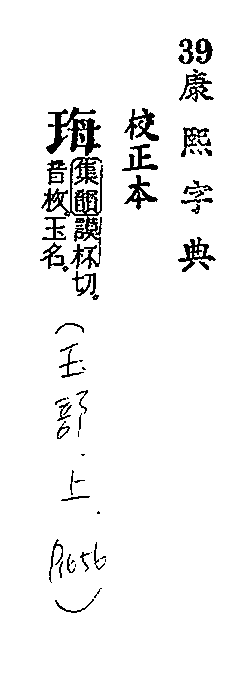 39康熙字典
校正本
珻集韻謨杯切。
音枚。玉名。
(玉部.上.P1656)